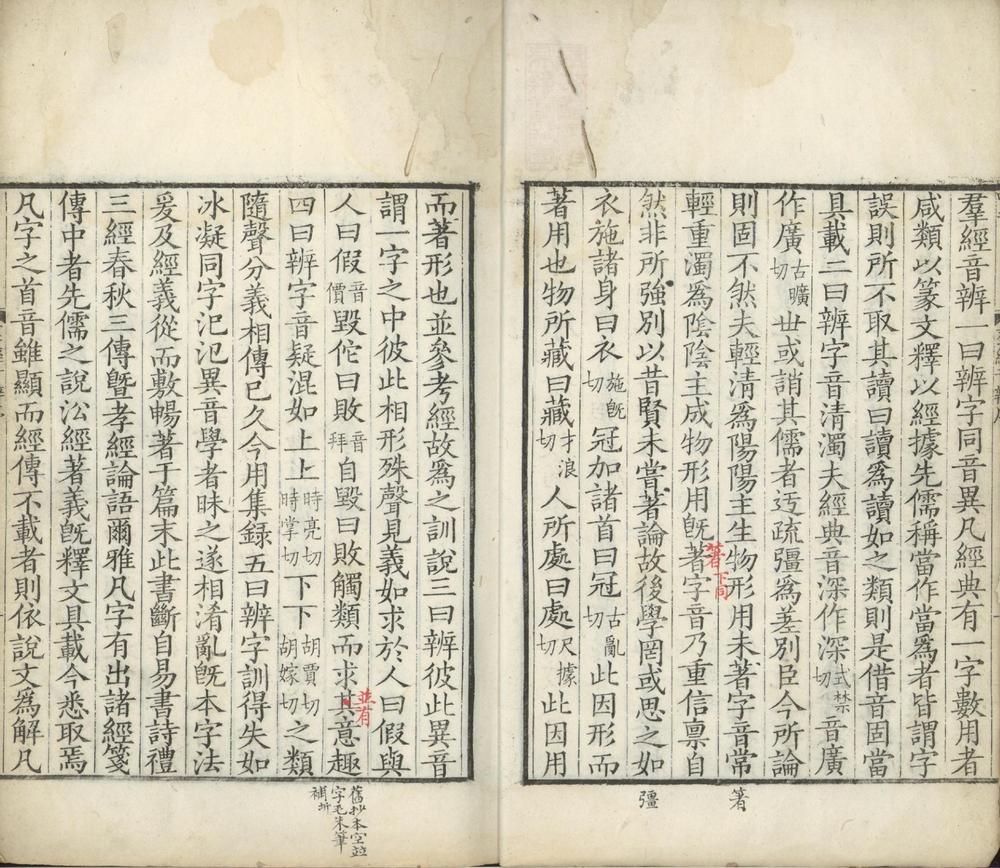 羣經音辨一曰辨字同音異凡經典有一字數用者
咸類以篆文釋以經據先儒稱當作當爲者皆謂字
誤則所不取其讀曰讀爲讀如之類則是借音固當
具載二曰辨字音清濁夫經典音深作深式禁切音廣
作廣古曠切世或誚其儒者迃疏彊爲差別臣今所論
則固不然夫輕清爲陽陽主生物形用未著字音常
輕重濁爲陰陰主成物形用旣著字音乃重信稟自
然非所強別以昔賢未嘗著論故後學罔或思之如
衣施諸身曰衣施旣切冠加諸首曰冠古亂切此因形而
著用也物所藏曰藏才浪切人所處曰處尺據切此因用
著下同
箸
彊
而著形也並參考經故爲之訓説三曰辨彼此異音
謂一字之中彼此相形殊聲見義如求於人曰假與
人曰假音價毀佗曰敗音拜自毀曰敗觸類而求其意趣
四曰辨字音疑混如上上時亮切時掌切下下胡賈切胡嫁切之類
隨聲分義相傳已久今用集録五曰辨字訓得失如
冰凝同字汜氾異音學者昧之遂相淆亂旣本字法
爰及經義從而敷暢著于篇末此書斷自易書詩禮
三經春秋三傳曁孝經論語爾雅凡字有出諸經箋
傳中者先儒之說㳂經著義旣釋文具載今悉取焉
凡字之首音雖顯而經傳不載者則依說文爲解凡
並有
舊抄本空並
字毛朱筆
補